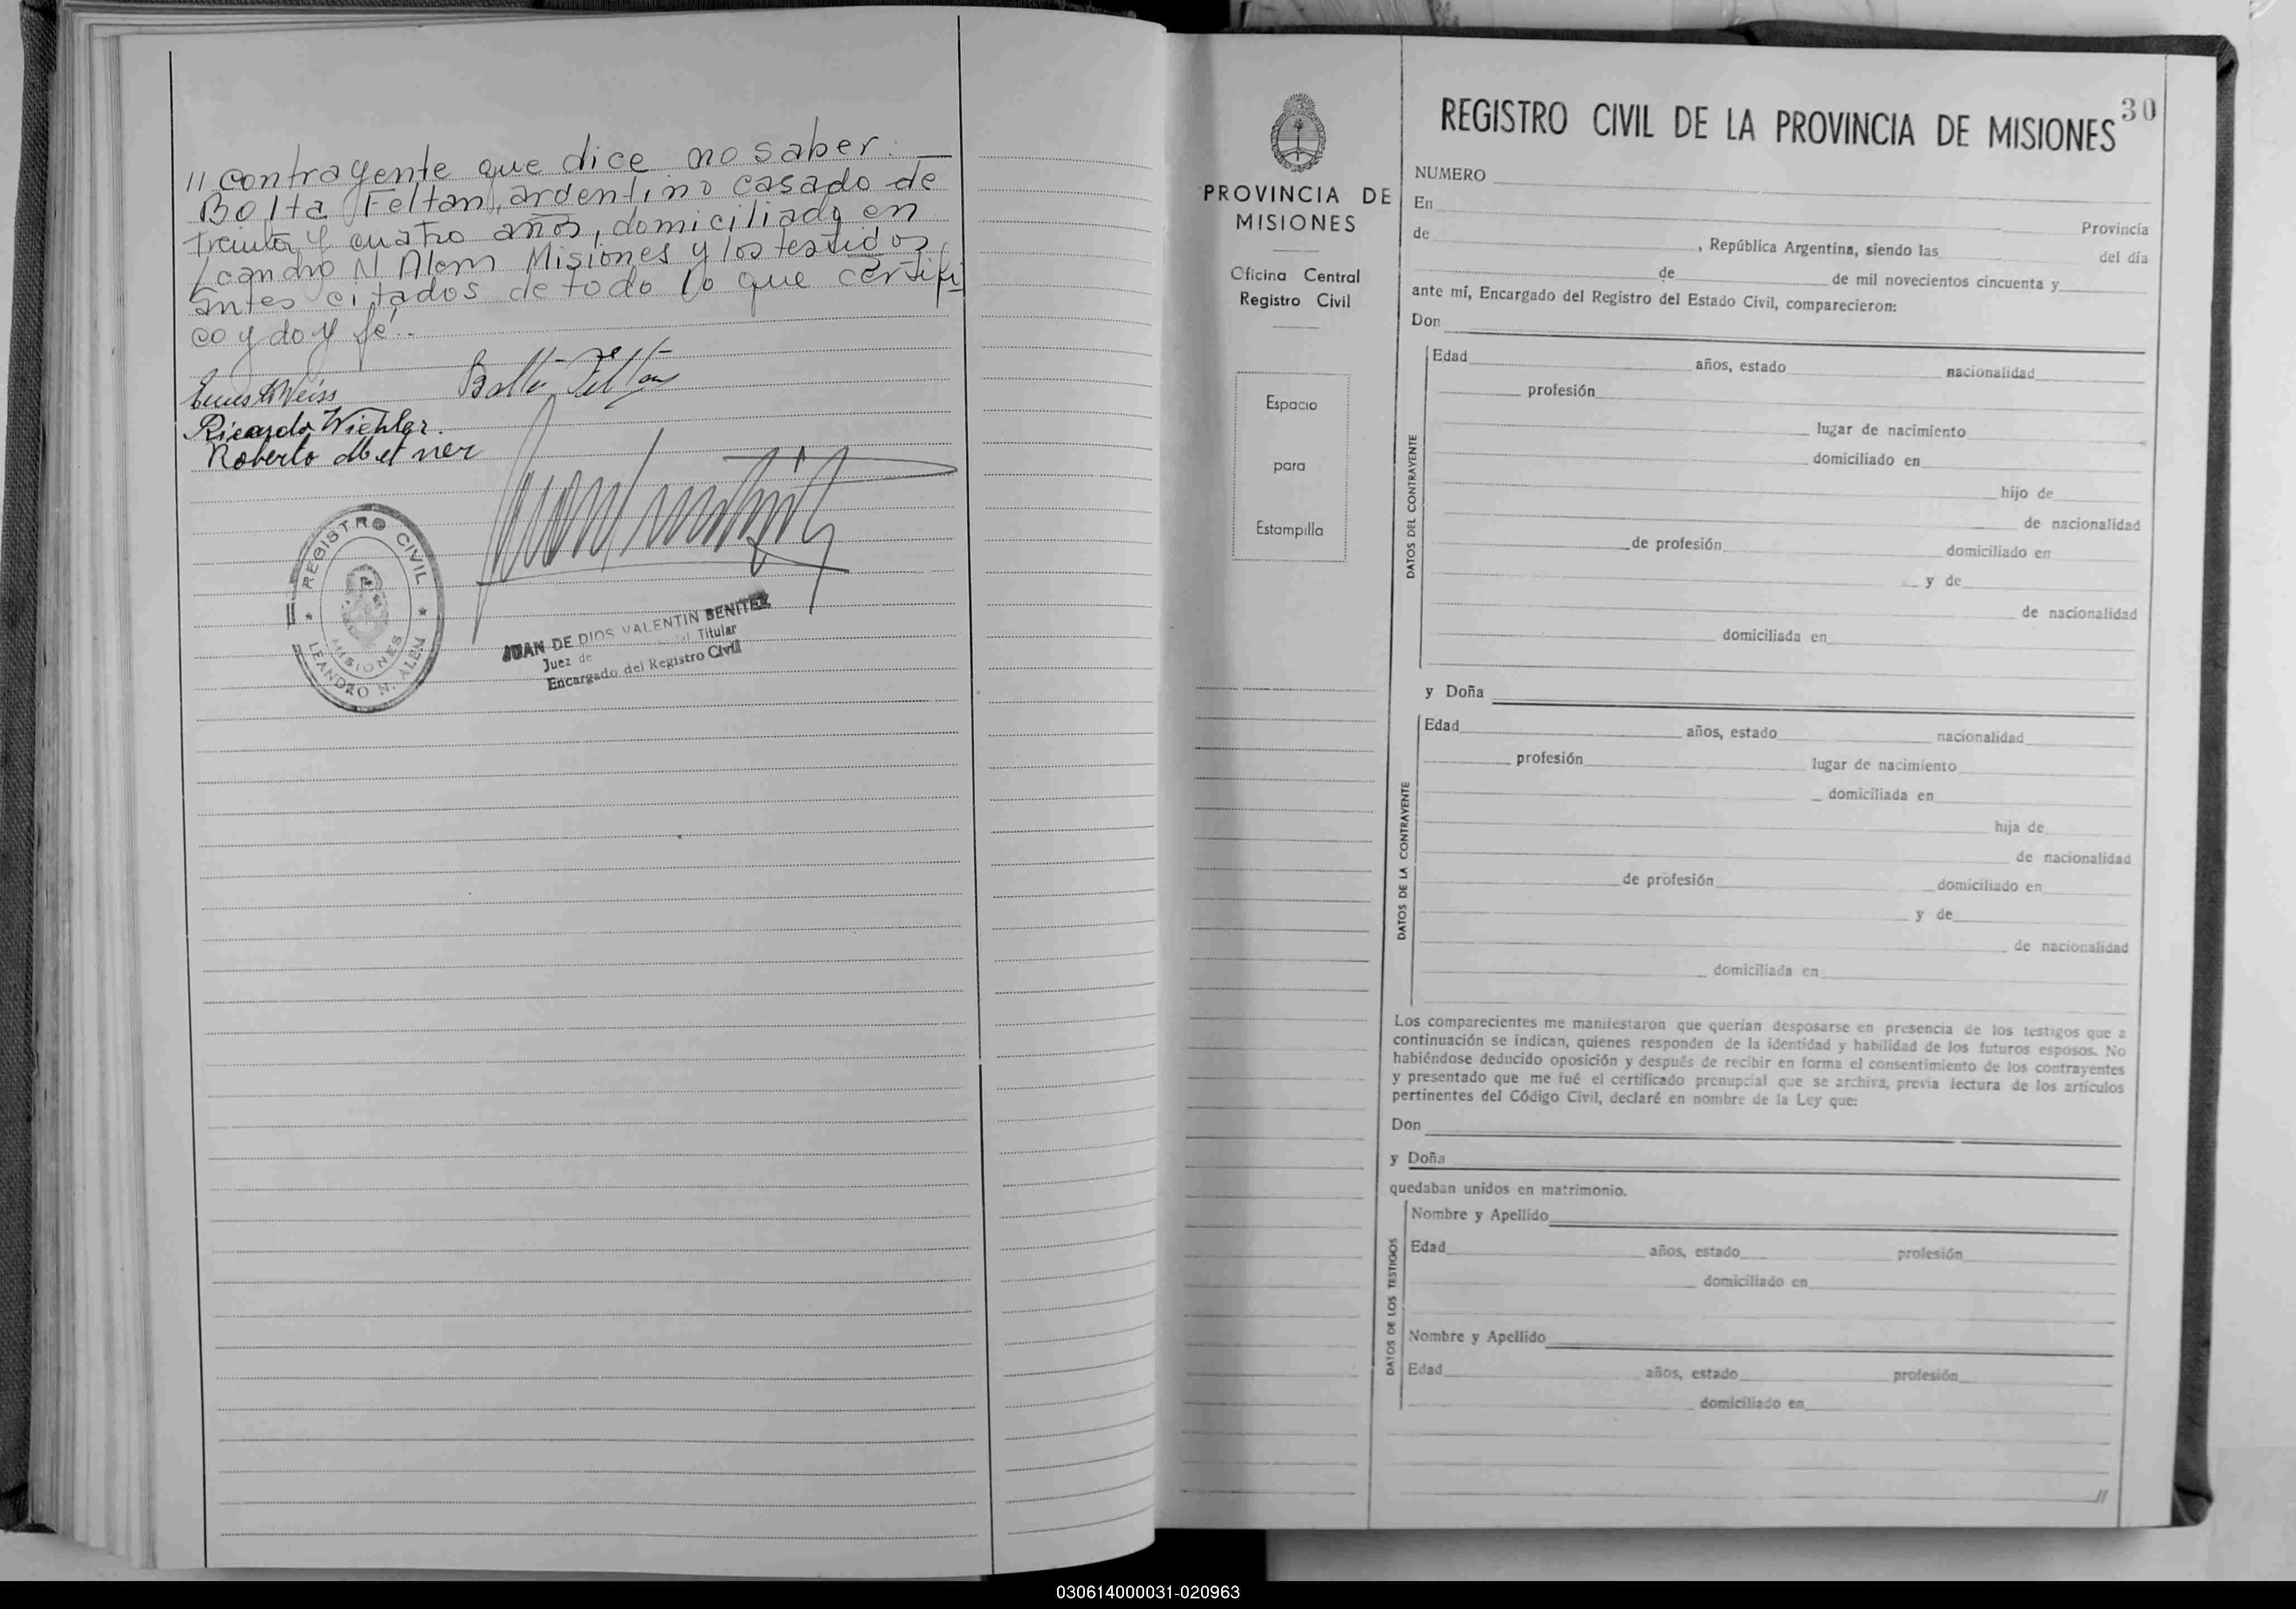 // contrayente que dice no saber. —
Bolta Feltan, argentino casado de
treinta y cuatro años, domiciliado en
Leandro N Alem Misiones y los testigos
antes citados de todo lo que certifi
co y doy fé..
Ernst Weiss
Ricardo Wichlar.
Roberto
REGISTRO CIVIL
MISIONES
LEANDRO N. ALEM
JUAN DE DIOS VALENTIN BENITEZ
Juez de Titular
Encargado del Registro Civil
PROVINCIA DE
MISIONES
Oficina Central
Registro Civil
Espacio
para
Estampilla
30
REGISTRO CIVIL DE LA PROVINCIA DE MISIONES
NUMERO
En
Provincia
de , República Argentina, siendo las del día
de de mil novecientos cincuenta y
ante mí, Encargado del Registro del Estado Civil, comparecieron:
Don
DATOS DEL CONTRAYENTE
Edad años, estado nacionalidad
profesión
lugar de nacimiento
domiciliado en
hijo de
de nacionalidad
de profesión domiciliado en
y de
de nacionalidad
domiciliada en
y Doña
DATOS DE LA CONTRAYENTE
Edad años, estado nacionalidad
profesión lugar de nacimiento
domiciliada en
hija de
de nacionalidad
de profesión domiciliado en
y de
de nacionalidad
domiciliada en
Los comparecientes me manifestaron que querían desposarse en presencia de los testigos que a
continuación se indican, quienes responden de la identidad y habilidad de los futuros esposos. No
habiéndose deducido oposición y después de recibir en forma el consentimiento de los contrayentes
y presentado que me fué el certificado prenupcial que se archiva, previa lectura de los artículos
pertinentes del Código Civil, declaré en nombre de la Ley que:
Don
y Doña
quedaban unidos en matrimonio.
DATOS DE LOS TESTIGOS
Nombre y Apellido
Edad años, estado profesión
domiciliado en
Nombre y Apellido
Edad años, estado profesión
domiciliado en
//
030614000031-020963